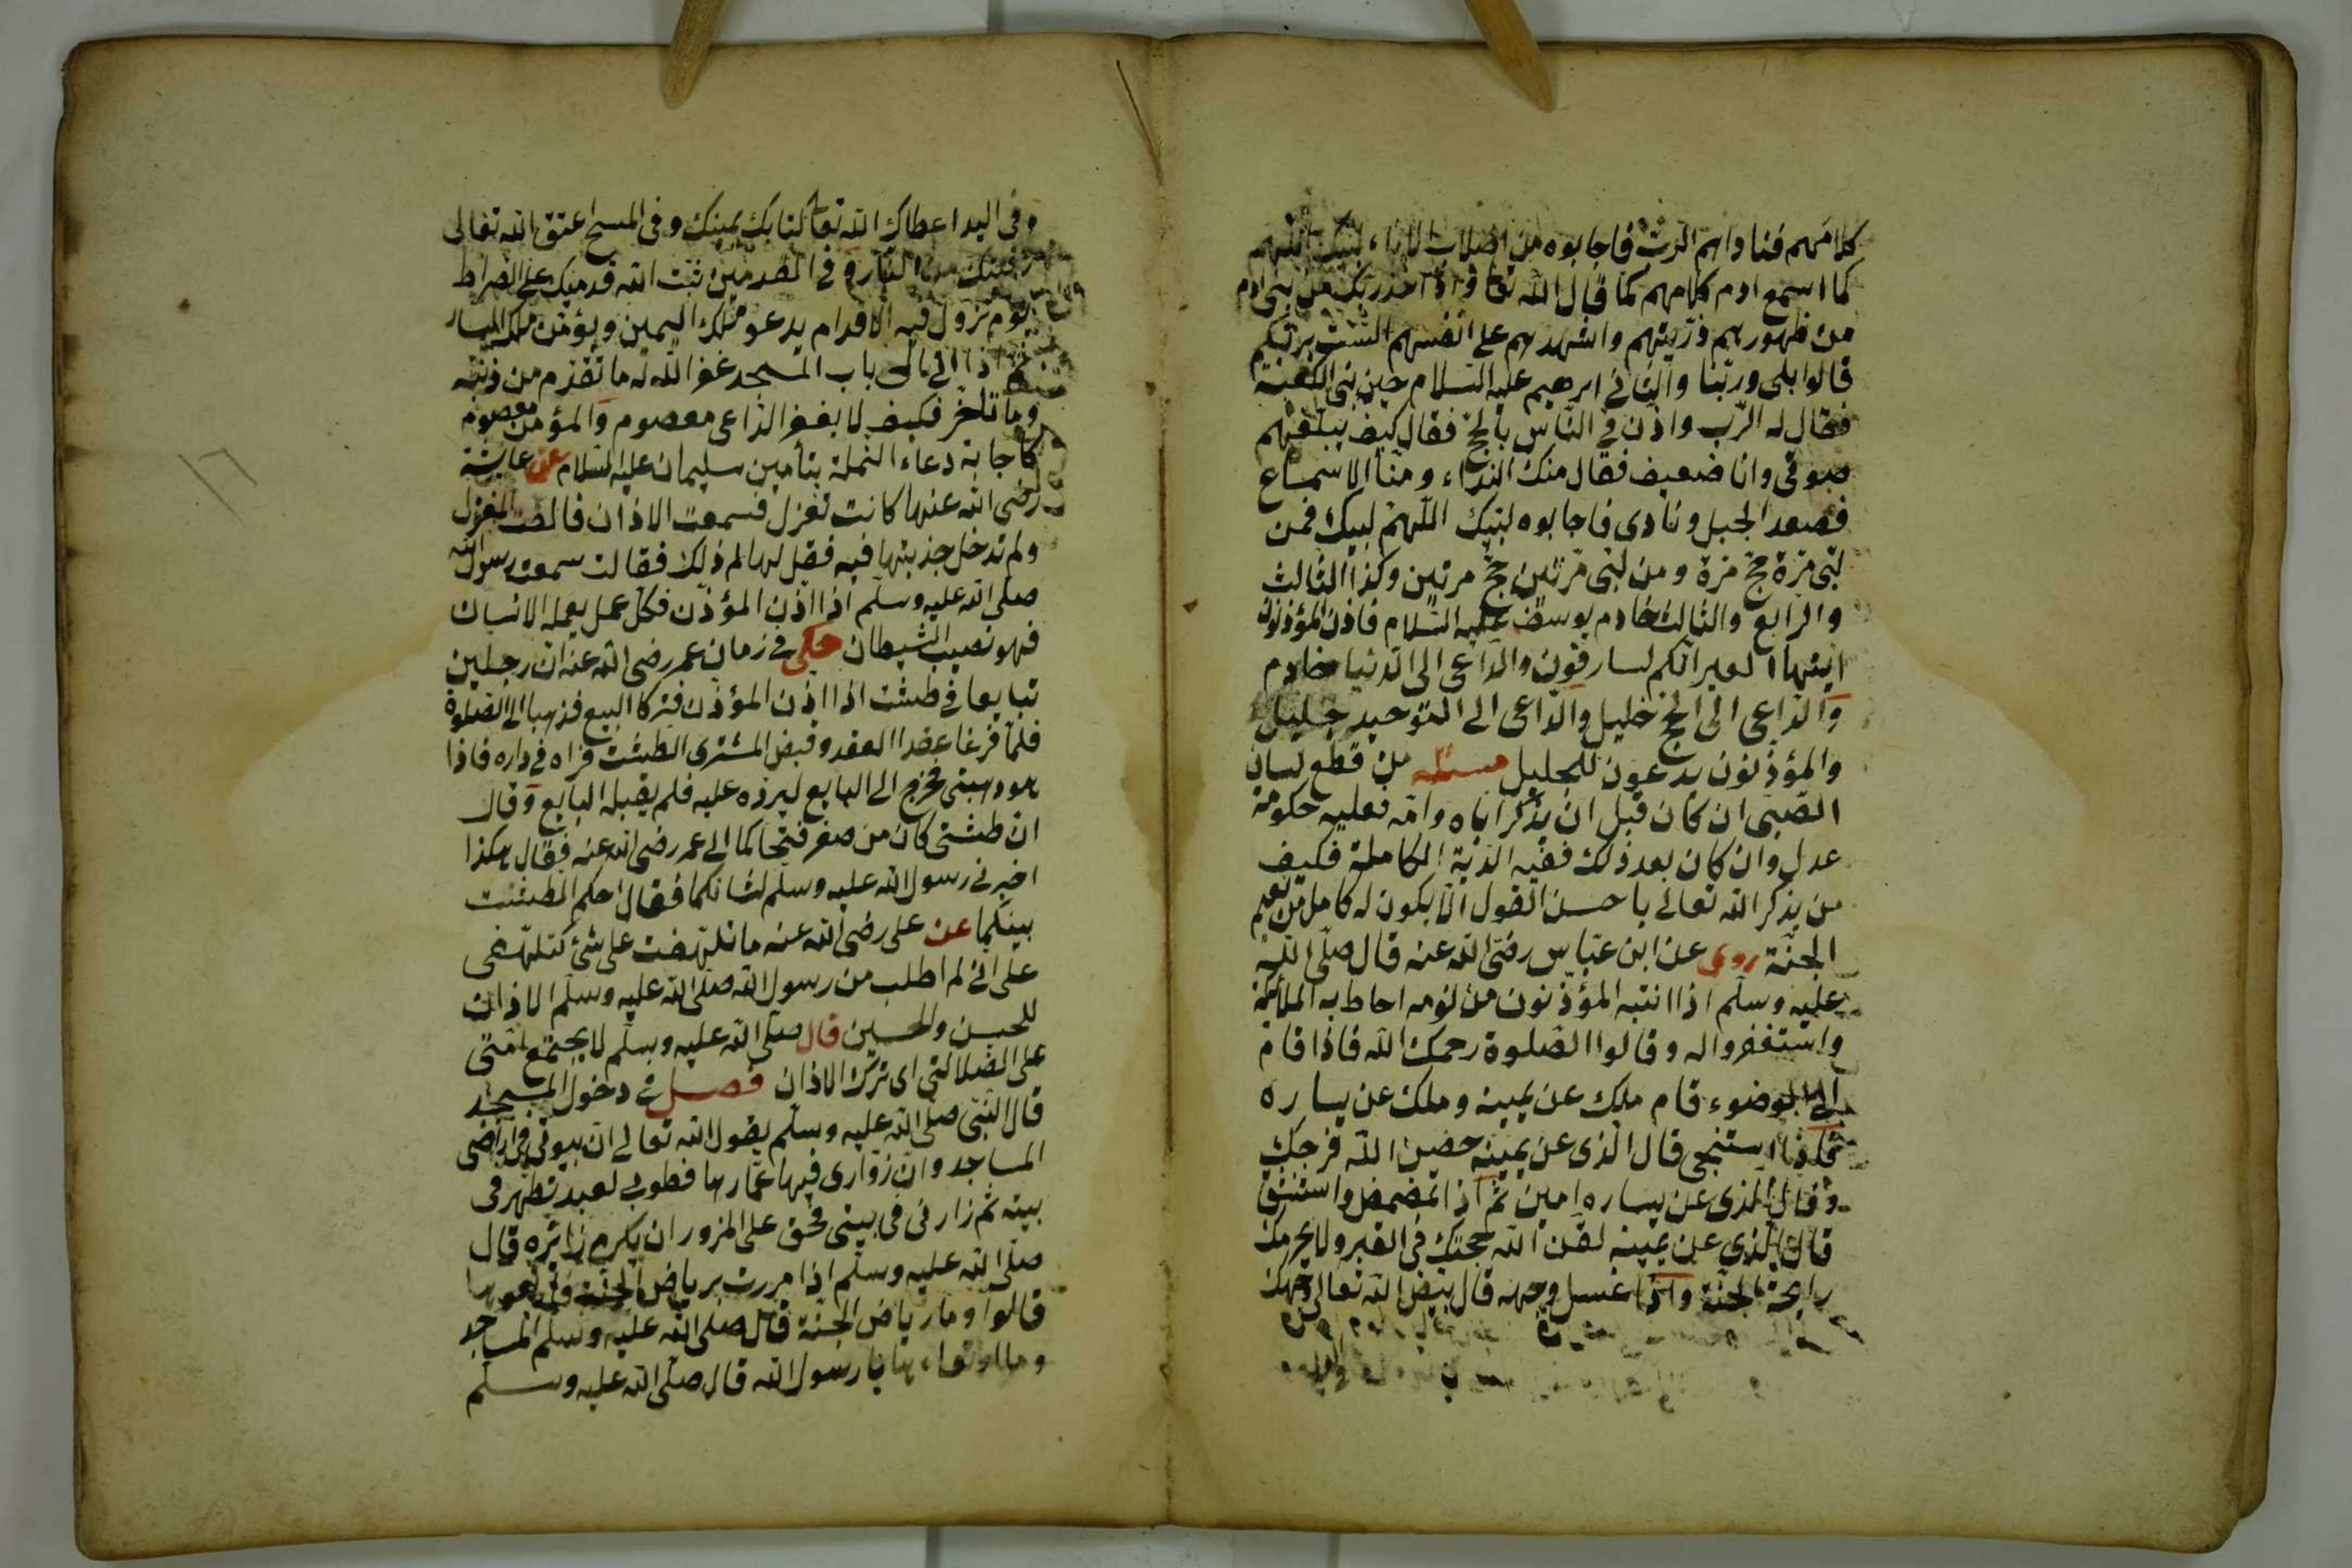 كلامهم فناداهم الرب فاجابوه من اصلاب الاباء لبيك اللهم
كما اسمع ادم كلامهم كما قال الله تعا واذ اخذ ربك من بنى ادم
من ظهورهم ذريتهم واشهدهم على انفسهم الست بربكم
قالوا بلى وربنا والثانى ابرهيم عليه السلام حين بنى الكعبة
فقال له الرب واذن فى الناس بالحج فقال كيف يبلغهم
صوتى وانا ضعيف فقال منك النداء ومنا الاسماع
فصعد الجبل ونادى فاجابوه لبيك اللهم لبيك فمن
لبى مرة حج مرة ومن لبى مرتين حج مرتين وكذا الثالث
والرابع والثالث خادم يوسف عليه السلام فاذن المؤذنون
ايتها العير انكم لسارقون والداعى الى الدنيا خادم
والداعى الى الحج خليل والداعى الى التوحيد جليل
والمؤذنون يدعون للجليل مسئله من قطع لسان
الصبى ان كان قبل ان يذكر اباه وامه فعليه حكومة
عدل وان كان بعد ذلك ففيه الدية الكاملة فكيف
من يذكر الله تعالى باحسن القول الا يكون له كامل من نعيم
الجنة روى عن ابن عباس رضى الله عنه قال صلى الله
عليه وسلم اذا انتبه المؤذنون من نومه احاط به الملائكة
واستغفروا له وقالوا الصلوة رحمك الله فاذا قام
الى الوضوء قام ملك عن يمينه وملك عن يساره
فاذا استنجى قال الذى عن يمينه حصن الله فرجك
وقال الذى عن يساره امين ثم اذا تمضمض واستنشق
قال الذى عن يمينه لقن الله حجتك فى القبر ولا يحرمك
رايحة الجنة واذا غسل وجهه قال بيض الله تعالى وجهك
وفى اليد اعطاك الله تعا كتابك بيمينك وفى المسح اعتق الله تعالى
من النار وفى القدمين ثبت الله قدميك على الصراط
يوم تزول فيه الاقدام يدعو ملك اليمين ويؤمن ملك اليسار
اذا اتى الى باب المسجد غفر الله له ما تقدم من ذنبه
وما تاخر فكيف لا يغفر الداعى معصوم والمؤمن معصوم
كاجابة دعاء النملة بتأمين سليمان عليه السلام عن عايشة
رضى الله عنها كانت تغزل فسمعت الاذان فالقت المغزل
ولم تدخل جذبتها فيه فقيل لها لم ذلك فقالت سمعت رسول الله
صلى الله عليه وسلم اذا اذن المؤذن فكل عمل يعمله الانسان
فهو نصيب الشيطان حكى فى زمان عمر رضى الله عنه ان رجلين
تبايعا فى طشت اذا اذن المؤذن فتركا البيع فذهبا الى الصلوة
فلما فرغا عقدا العقد وقبض المشترى الطشت فراه فى داره فاذا
هو ذهب فخرج الى البايع ليرده عليه فلم يقبله البايع وقال
ان طشتى كان من صفر فتحاكما الى عمر رضى الله عنه فقال هكذا
اخبرنى رسول الله عليه وسلم لشانكما فقال احكم الطشت
بينكما عن على رضى الله عنه ما تلهفت على شئ كتلهفى
على انى لم اطلب من رسول الله صلى الله عليه وسلم الاذان
للحسن والحسين قال صلى الله عليه وسلم لا يجتمع امتى
على الضلالتى اى ترك الاذان فصل فى دخول المسجد
قال النبى صلى الله عليه وسلم يقول الله تعالى ان بيوتى فى اراضى
المساجد وان زوارى فيها عمارها فطوبى لعبد تطهر فى
بيته ثم زارنى فى بيتى فحق على المزور ان يكرم زائره قال
صلى الله عليه وسلم اذا مررت برياض الجنة
قالوا وما رياض الجنة قال صلى الله عليه وسلم المساجد
يا رسول الله قال صلى الله عليه وسلم
١٦